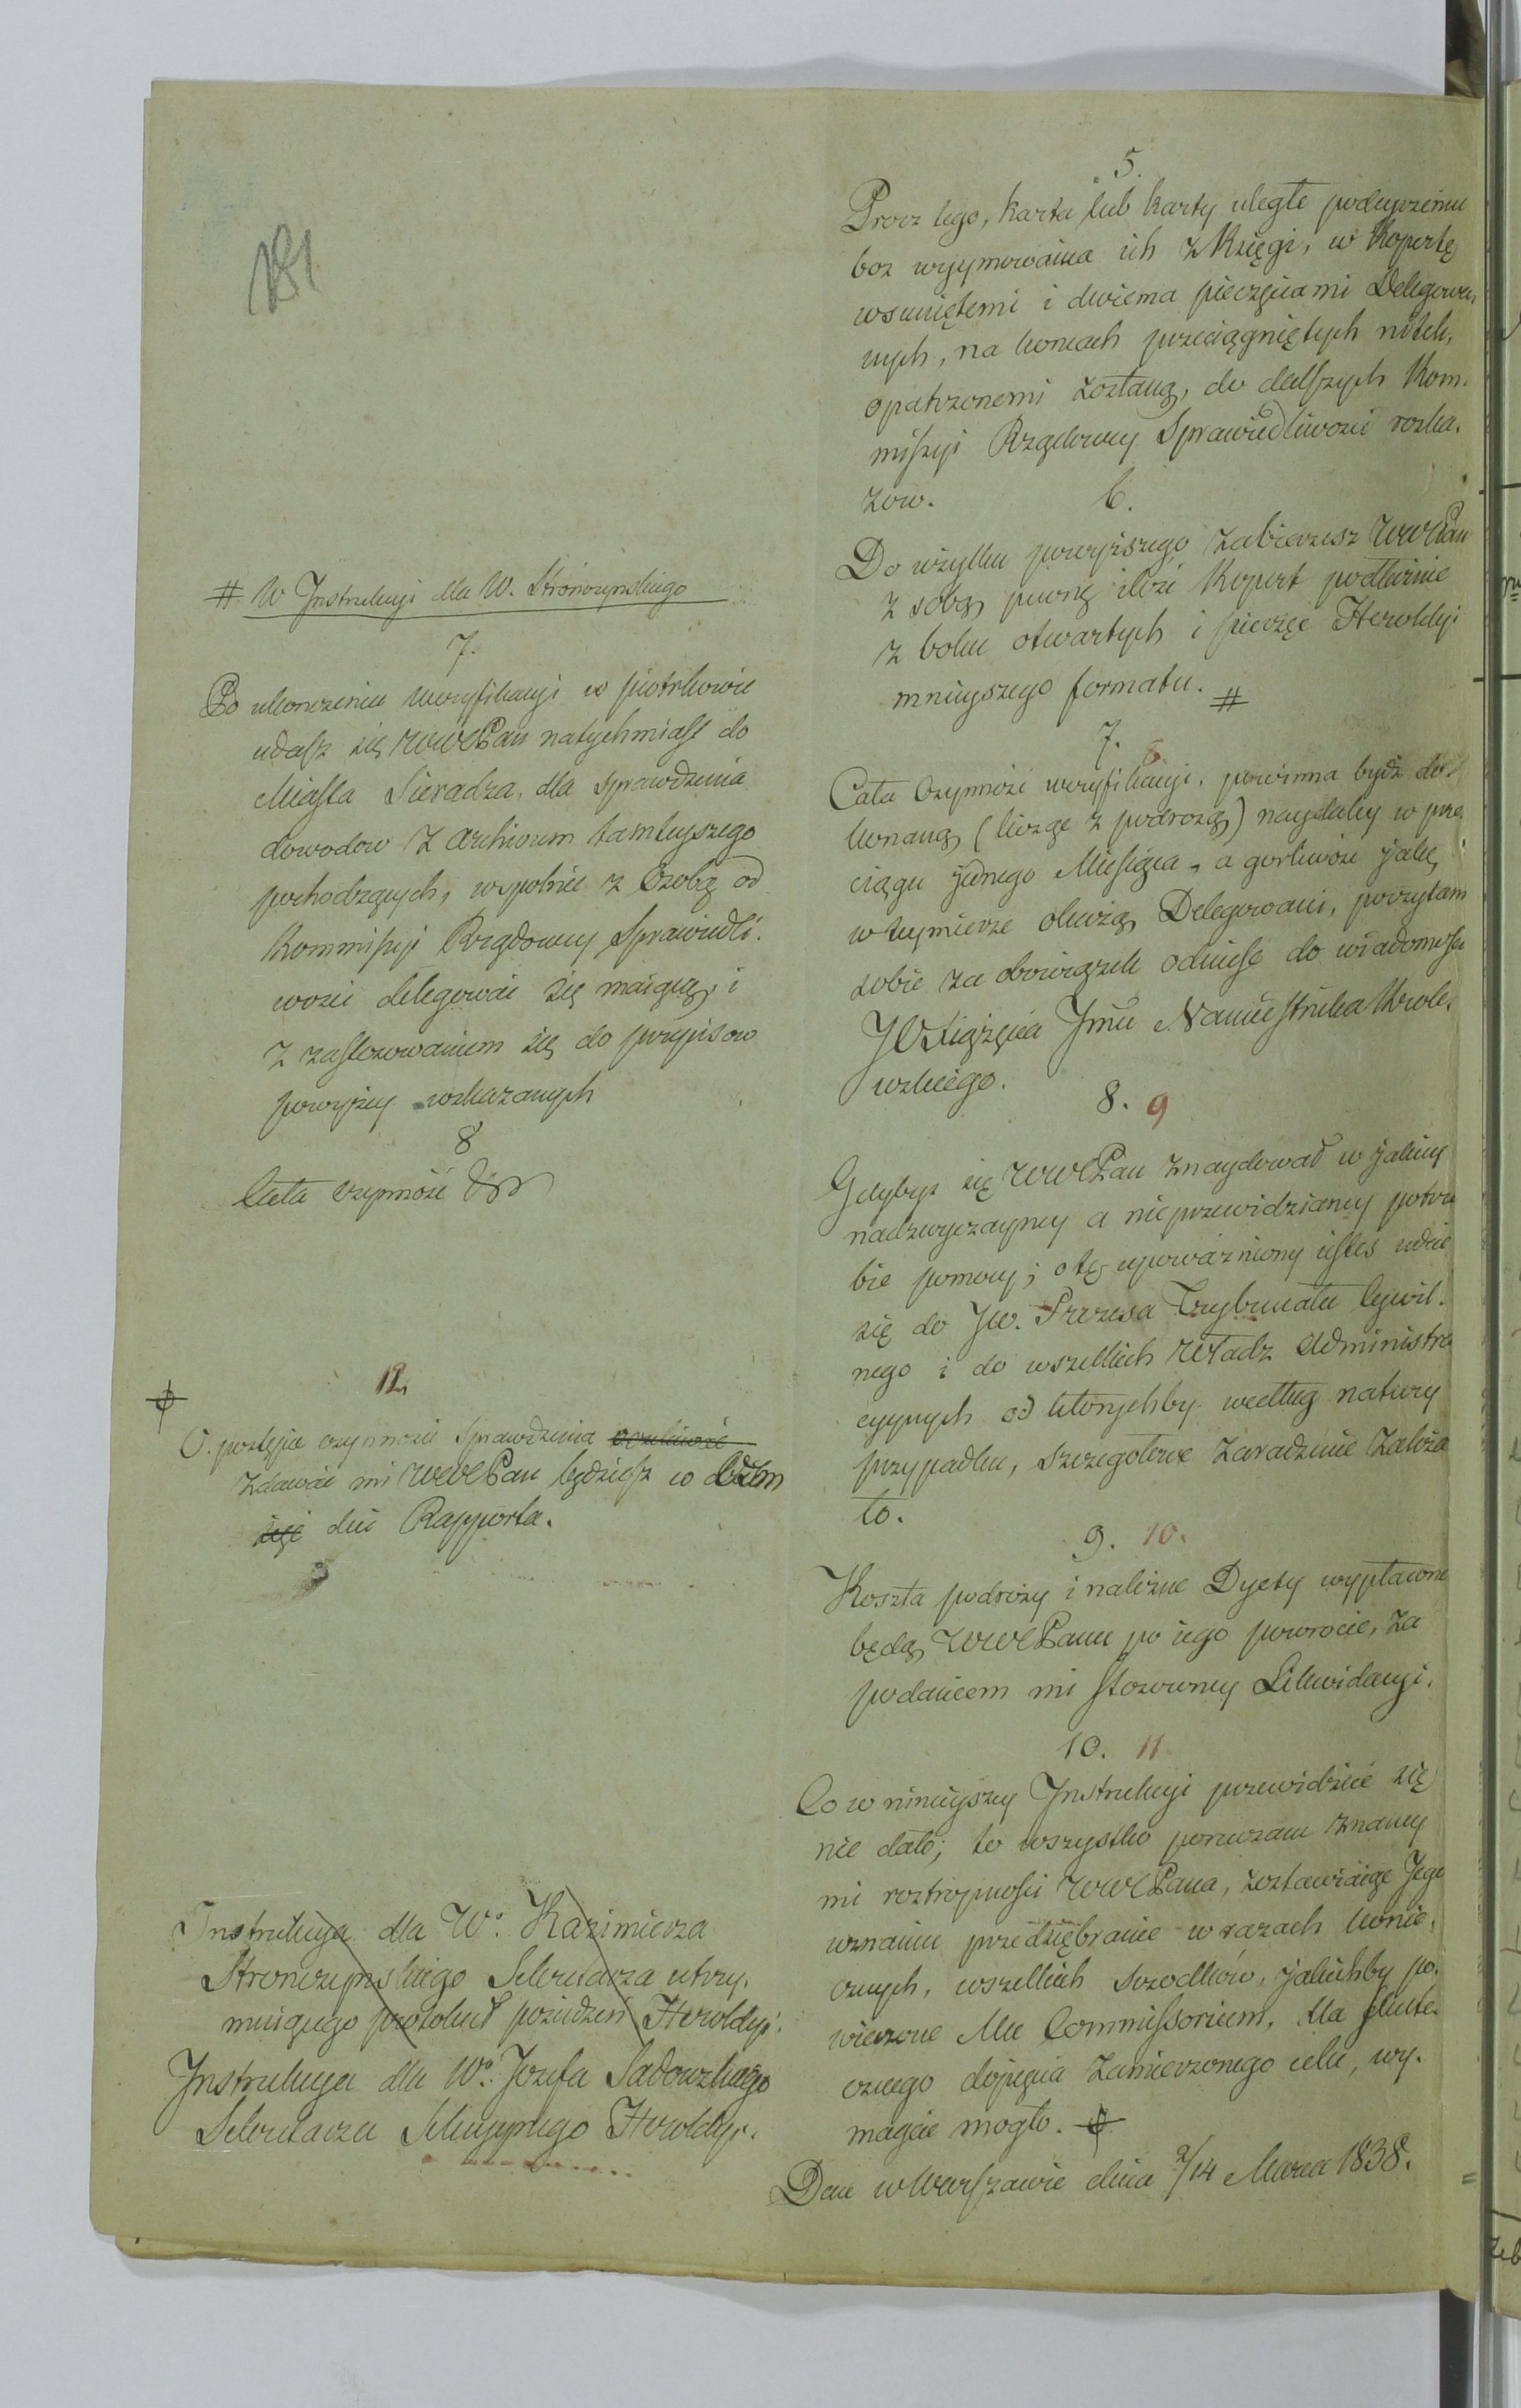 # W Instrukcyi dla W. Strończynskiego
7.
Po ukonczeniu weryfikacyi w Piotrkowie
udasz się WWPan natychmiast do
Miasta Sieradza, dla sprawdzenia
dowodow z Archiwum tamteyszego
pochodzących, wspolnie z Osobą od
Kommissyi Rządowey Sprawiedli-
wości delegować się maiącą, i
z zastosowaniem się do przepisow
powyżey wskazanych
8
Cała czynność
12.
O postępie czynności Sprawdzenia
zdawać mi WWPan będziesz co
dni Rapporta.
Instrukcya dla Wo. Kazimierza
Stronczynskiego Sekretarza utrzy-
muiącego protokuł posiedzeń Heroldyi.
Instrukcya dla Wo. Jozefa Sadowskiego
Sekretarza Sekcyynego Heroldyi.
5.
Procz tego, karta lub karty uległe podeyrzeniu
bez wyymowania ich z Księgi, w Kopertę
wsuniętemi i dwiema pieczęciami Delegowa-
nych, na koncach przeciągniętych nitek,
opatrzonemi zostaną, do dalszych Kom-
missyi Rządowey Sprawiedliwości rozka-
zow.
6.
Do użytku powyższego zabierzesz WWPan
z sobą pewną ilość Kopert podłużnie
z boku otwartych i pieczęć Heroldyi
mnieyszego formatu. #
7. 8
Cała Czynność weryfikacyi, powinna bydź do-
konaną (licząc z podrożą) naydaley w prze-
ciągu jednego Miesiąca, a gorliwość jaką
w teymierze okażą Delegowani, poczytam
sobie za obowiązek odnieść do wiadomości
JO Xiążęcia Jmci Namiestnika Krole-
wskiego.
8. 9
Gdybyś się WWPan znaydował w jakiey
nadzwyczayney a nieprzewidzianey potrze
bie pomocy; o tę upoważniony iesteś udać
się do JW. Prezesa Trybunału Cywil-
nego i do wszelkich Władz Administra
cyynych od ktorychby według natury
przypadku, szczegolowe zaradzenie zależa
ło.
9. 10.
Koszta podroży i należne Dyety wypłacone
będą WWPanu po iego powrocie, za
podaniem mi stosowney Likwidacyi.
10. 11
Co w ninieyszey Instrukcyi przewidzieć się
nie dało; to wszystko poruczam znaney
mi roztropności WWPana, zostawiaiąc Jego
uznaniu przedsiębranie w razach konie-
cznych, wszelkich srzodków, jakichby po-
wierzone Mu Commissorium, dla skute-
cznego dopięcia zamierzonego celu, wy-
magać mogło.
Dan w Warszawie dnia 2/14 Marca 1838.